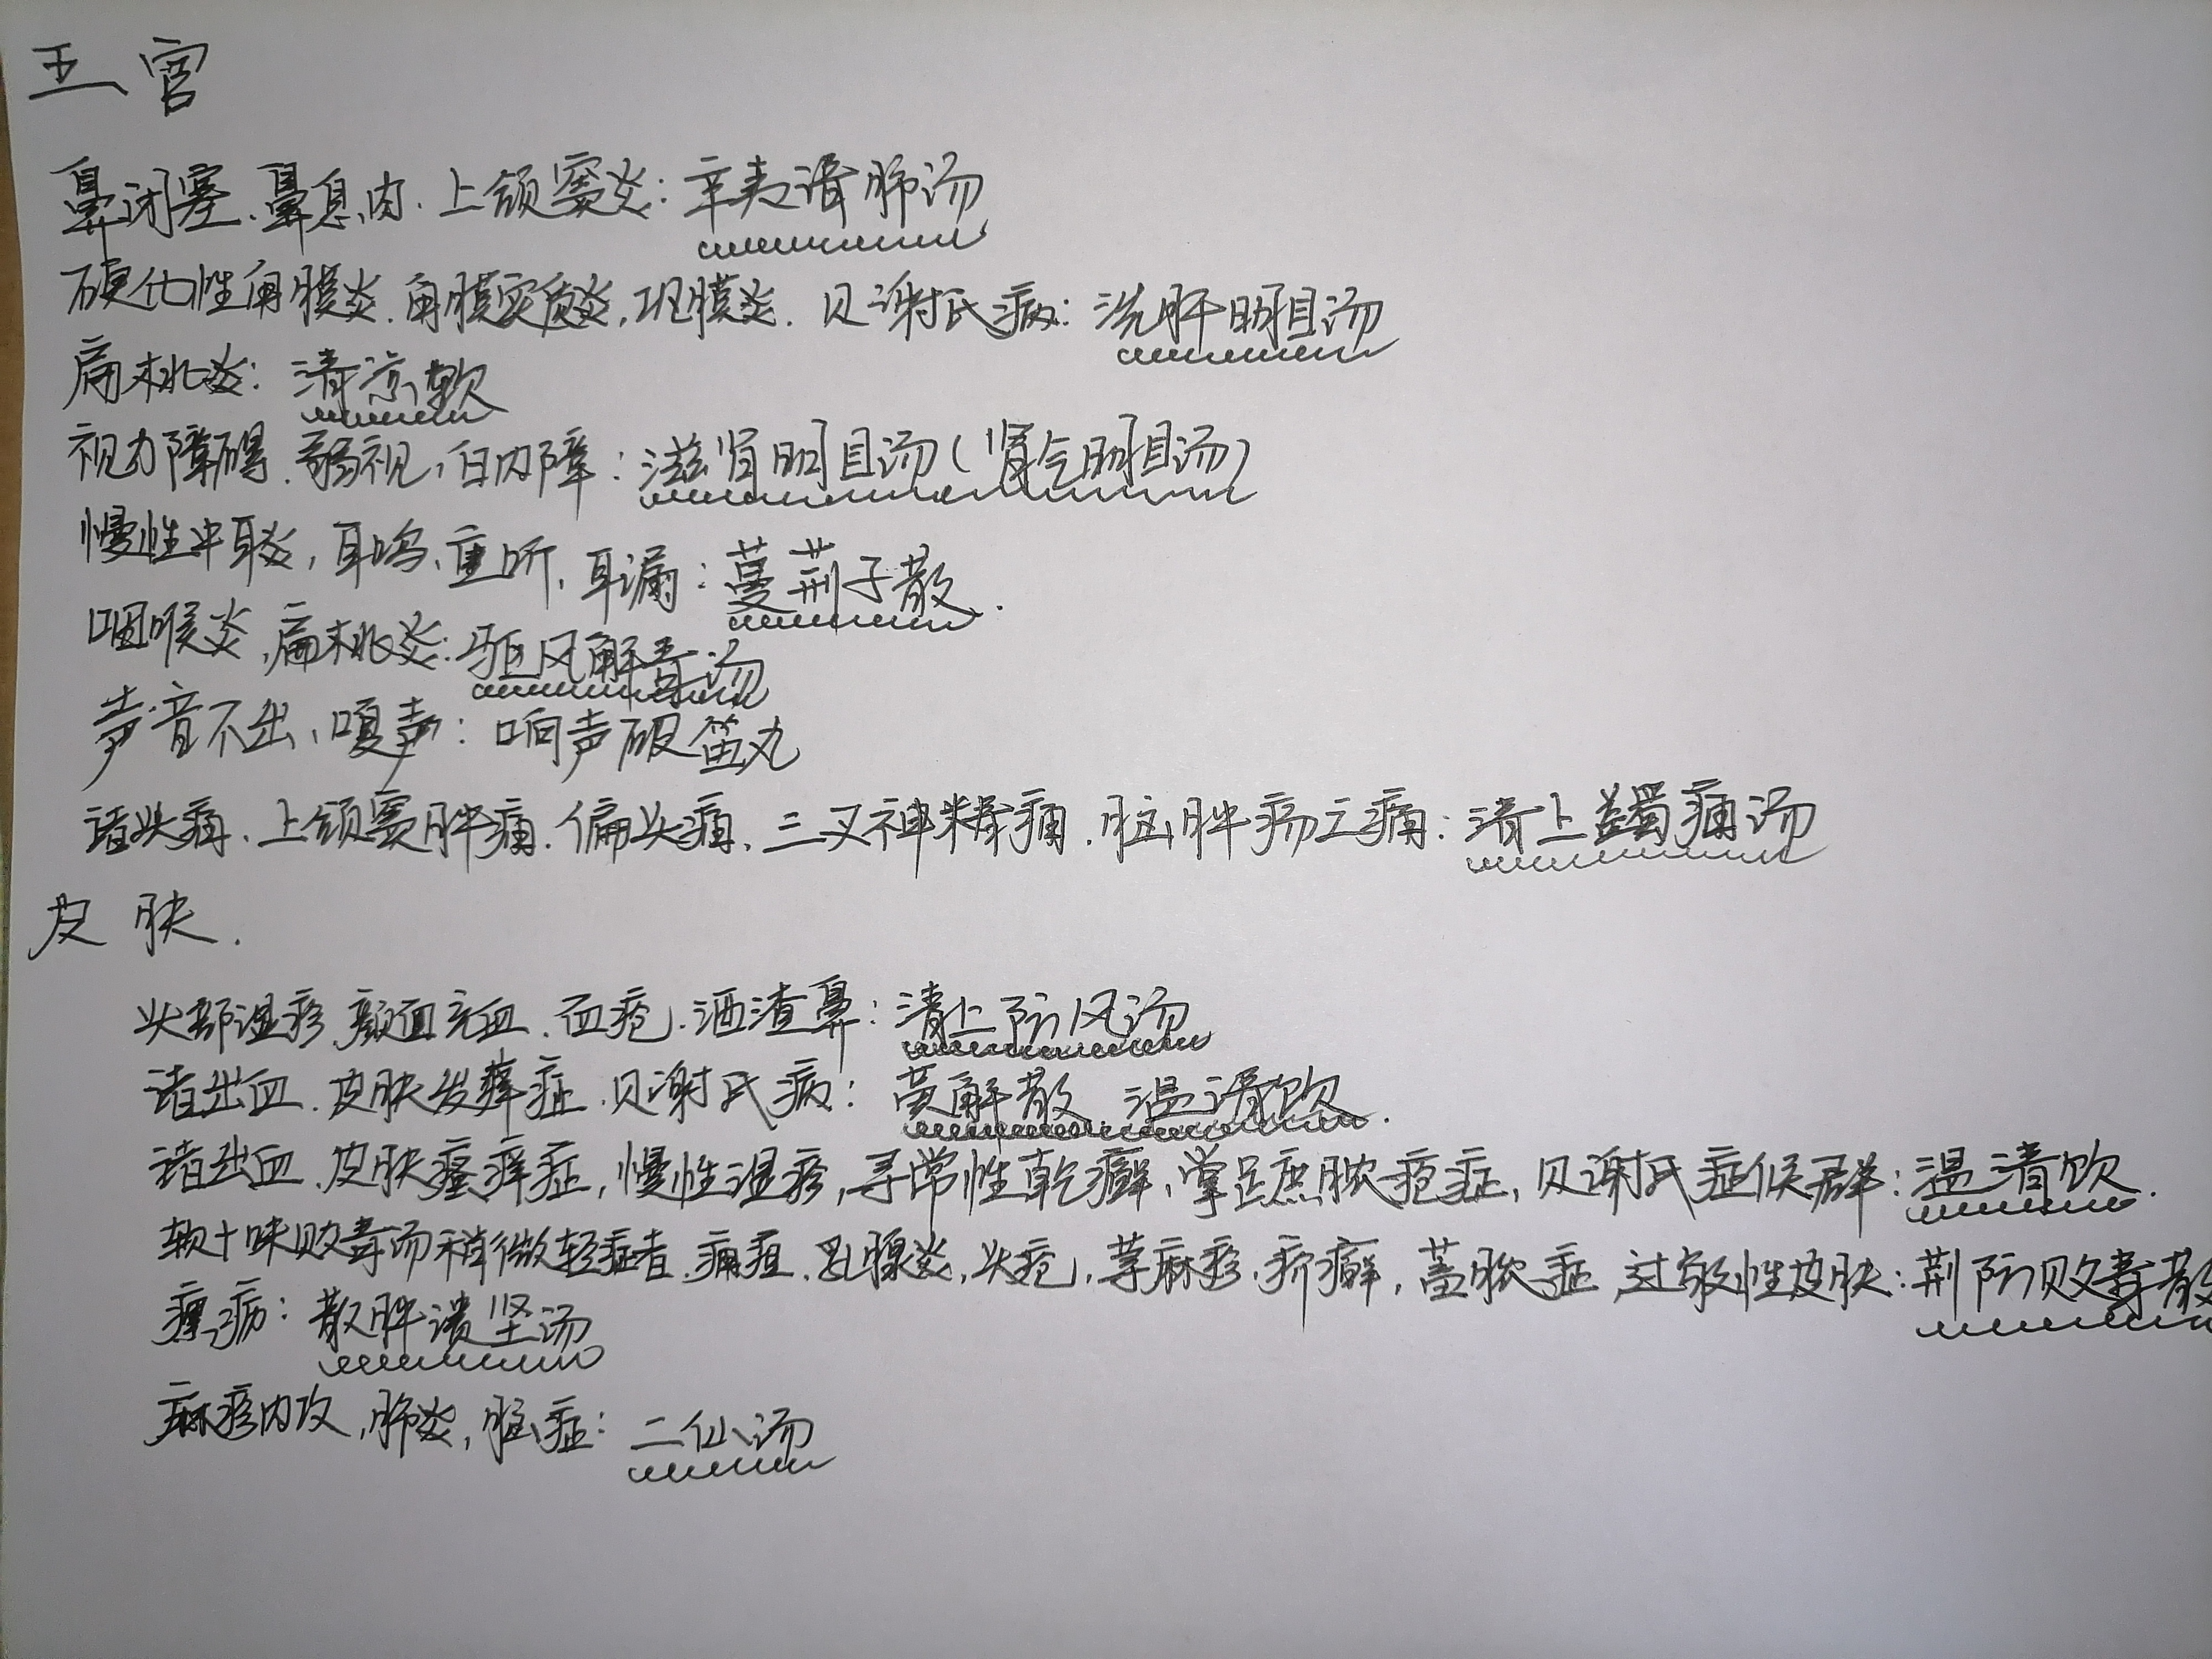 五官
鼻闭塞、鼻息肉、上颌窦炎：辛夷清肺汤
硬化性角膜炎、角膜实质炎，巩膜炎、贝谢氏病：洗肝明目汤
扁桃炎：清凉饮
视力障碍、弱视，白内障：滋肾明目汤（肾气明目汤）
慢性中耳炎，耳鸣、重听、耳漏：蔓荆子散.
咽喉炎，扁桃炎：驱风解毒汤
声音不出、嗄声：响声破笛丸
诸头痛、上颌窦肿痛、偏头痛、三叉神经痛、脑肿疡之痛：清上蠲痛汤
皮肤.
头部湿疹、颜面充血、面疱、酒渣鼻：清上防风汤
诸出血、皮肤发痒症、贝谢氏病：黄解散、温清饮.
诸出血、皮肤瘙痒症，慢性湿疹，寻常性乾癣、掌足蹠脓疱症，贝谢氏症候群：温清饮.
较十味败毒汤稍微轻症者、痈疽、乳腺炎，头疮，荨麻疹、疥癣，蓄脓症、过敏性皮肤：荆防败毒散
瘰疬：散肿溃坚汤
麻疹内攻，肺炎，脑症：二仙汤